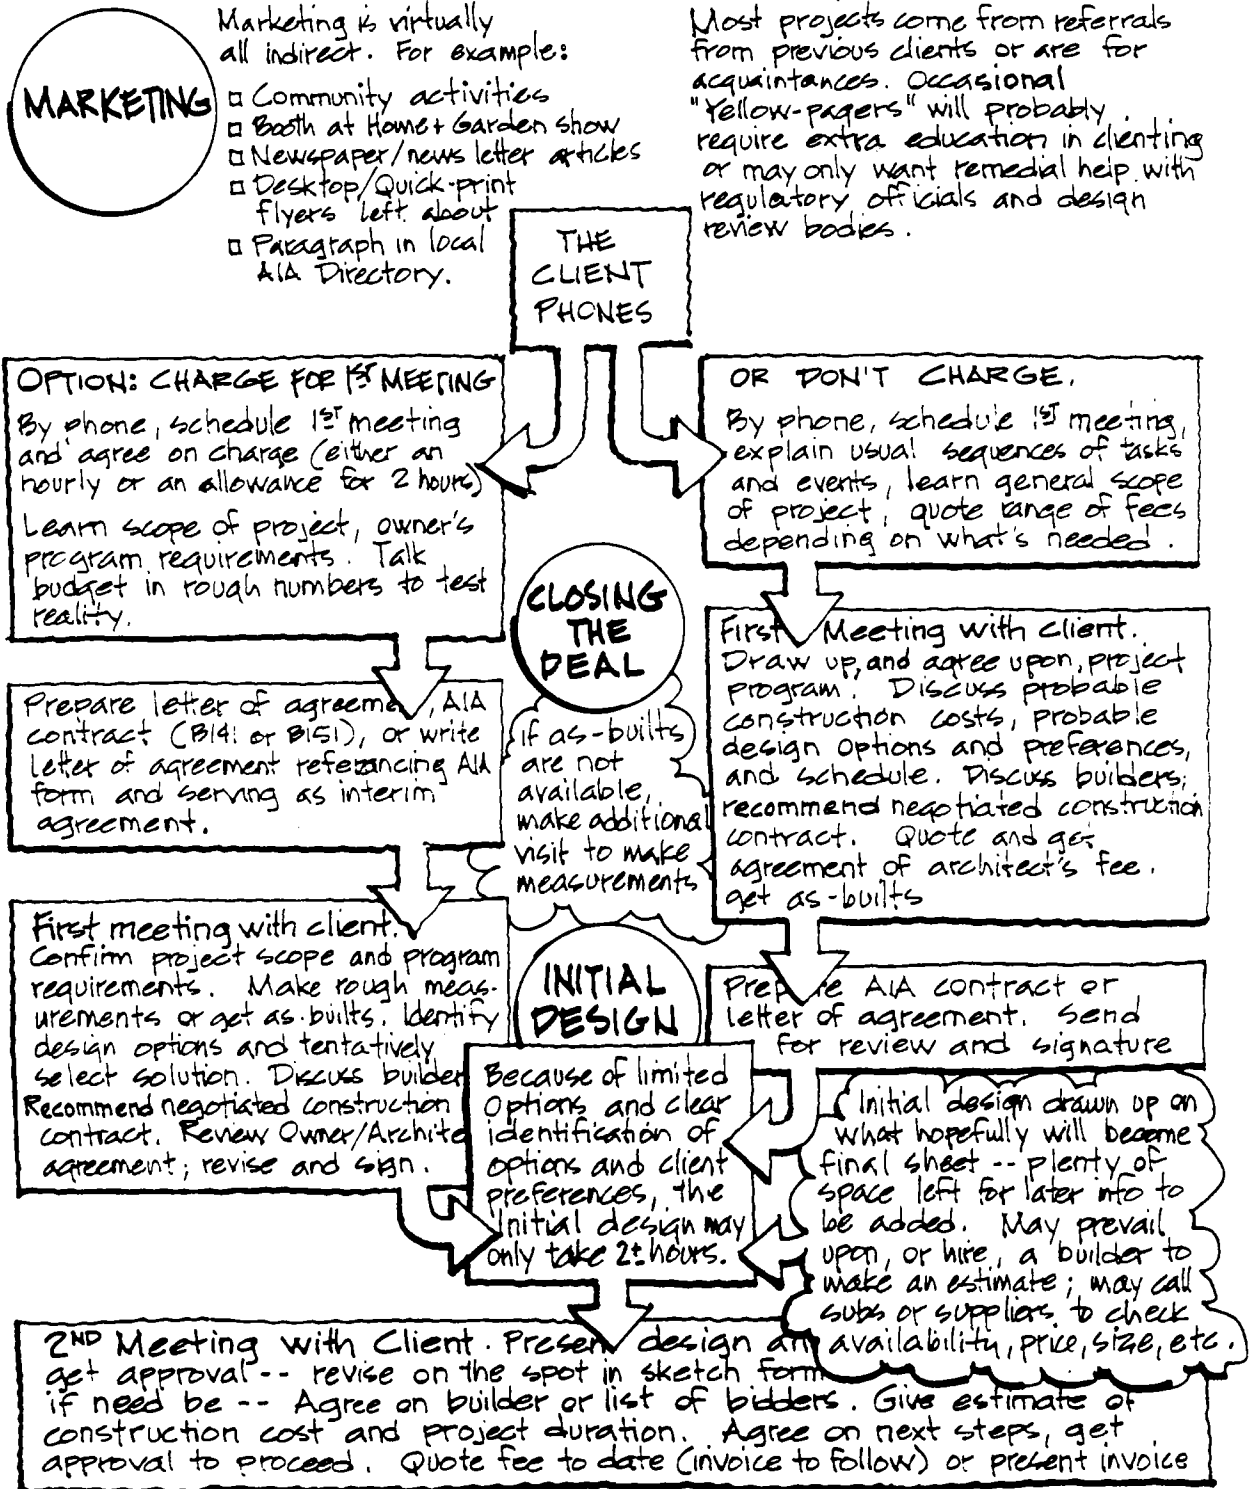 MARKETING
Marketing is virtually
all indirect. For example:
□ Community activities
□ Booth at Home + Garden show
□ Newspaper/news letter articles
□ Desktop/Quick-print
flyers left about
□ Paragraph in local
AIA Directory.
Most projects come from referrals
from previous clients or are for
acquaintances. Occasional
"Yellow-pagers" will probably
require extra education in clienting
or may only want remedial help with
regulatory officials and design
review bodies.
THE
CLIENT
PHONES
OPTION: CHARGE FOR 1ST MEETING
By phone, schedule 1ST meeting
and agree on charge (either an
hourly or an allowance for 2 hours)
Learn scope of project, owner's
program requirements. Talk
budget in rough numbers to test
reality.
OR DON'T CHARGE.
By phone, schedule 1ST meeting,
explain usual sequences of tasks
and events, learn general scope
of project, quote range of fees
depending on what's needed.
CLOSING
THE
DEAL
Prepare letter of agreement, AIA
contract (B141 or B151), or write
letter of agreement referencing AIA
form and serving as interim
agreement.
if as-builts
are not
available,
make additional
visit to make
measurements
First Meeting with client.
Draw up, and agree upon, project
program. Discuss probable
construction costs, probable
design options and preferences,
and schedule. Discuss builders;
recommend negotiated construction
contract. Quote and get
agreement of architect's fee.
get as-builts
First meeting with client.
Confirm project scope and program
requirements. Make rough meas-
urements or get as-builts. Identify
design options and tentatively
select solution. Discuss builder
Recommend negotiated construction
contract. Review Owner/Archite
agreement; revise and sign.
INITIAL
DESIGN
Prepare AIA contract or
letter of agreement. Send
for review and signature
Because of limited
options and clear
identification of
options and client
preferences, the
initial design may
only take 2± hours.
Initial design drawn up on
what hopefully will become
final sheet -- plenty of
space left for later info to
be added. May prevail
upon, or hire, a builder to
make an estimate; may call
subs or suppliers to check
availability, price, size, etc.
2ND Meeting with Client. Present design an
get approval -- revise on the spot in sketch form
if need be -- Agree on builder or list of bidders. Give estimate of
construction cost and project duration. Agree on next steps, get
approval to proceed. Quote fee to date (invoice to follow) or present invoice